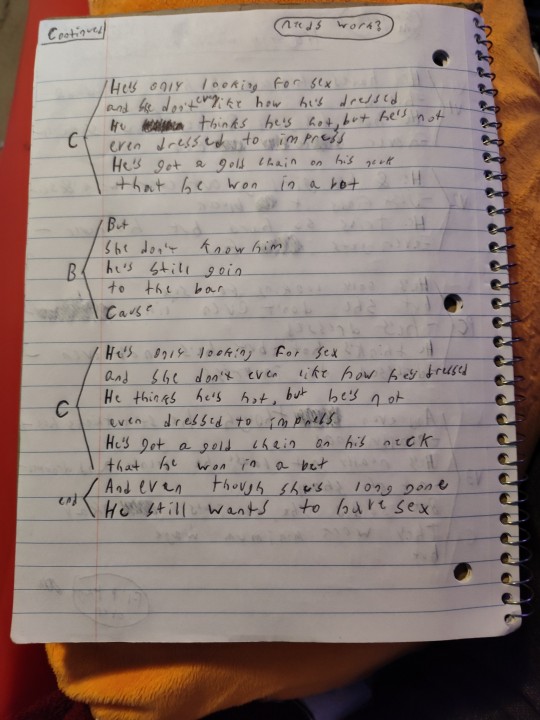 Continued
Needs work?
He's only looking for sex
and she don't even like how he's dressed
He thinks he's hot, but he's not
even dressed to impress
He's got a gold chain on his neck
that he won in a bet
C
But
she don't know him
he's still goin
to the bar
Cause
B
He's only looking for sex
and she don't even like how he's dressed
He thinks he's hot, but he's not
even dressed to impress
He's got a gold chain on his neck
that he won in a bet
C
And even though she's long gone
He still wants to have sex
end